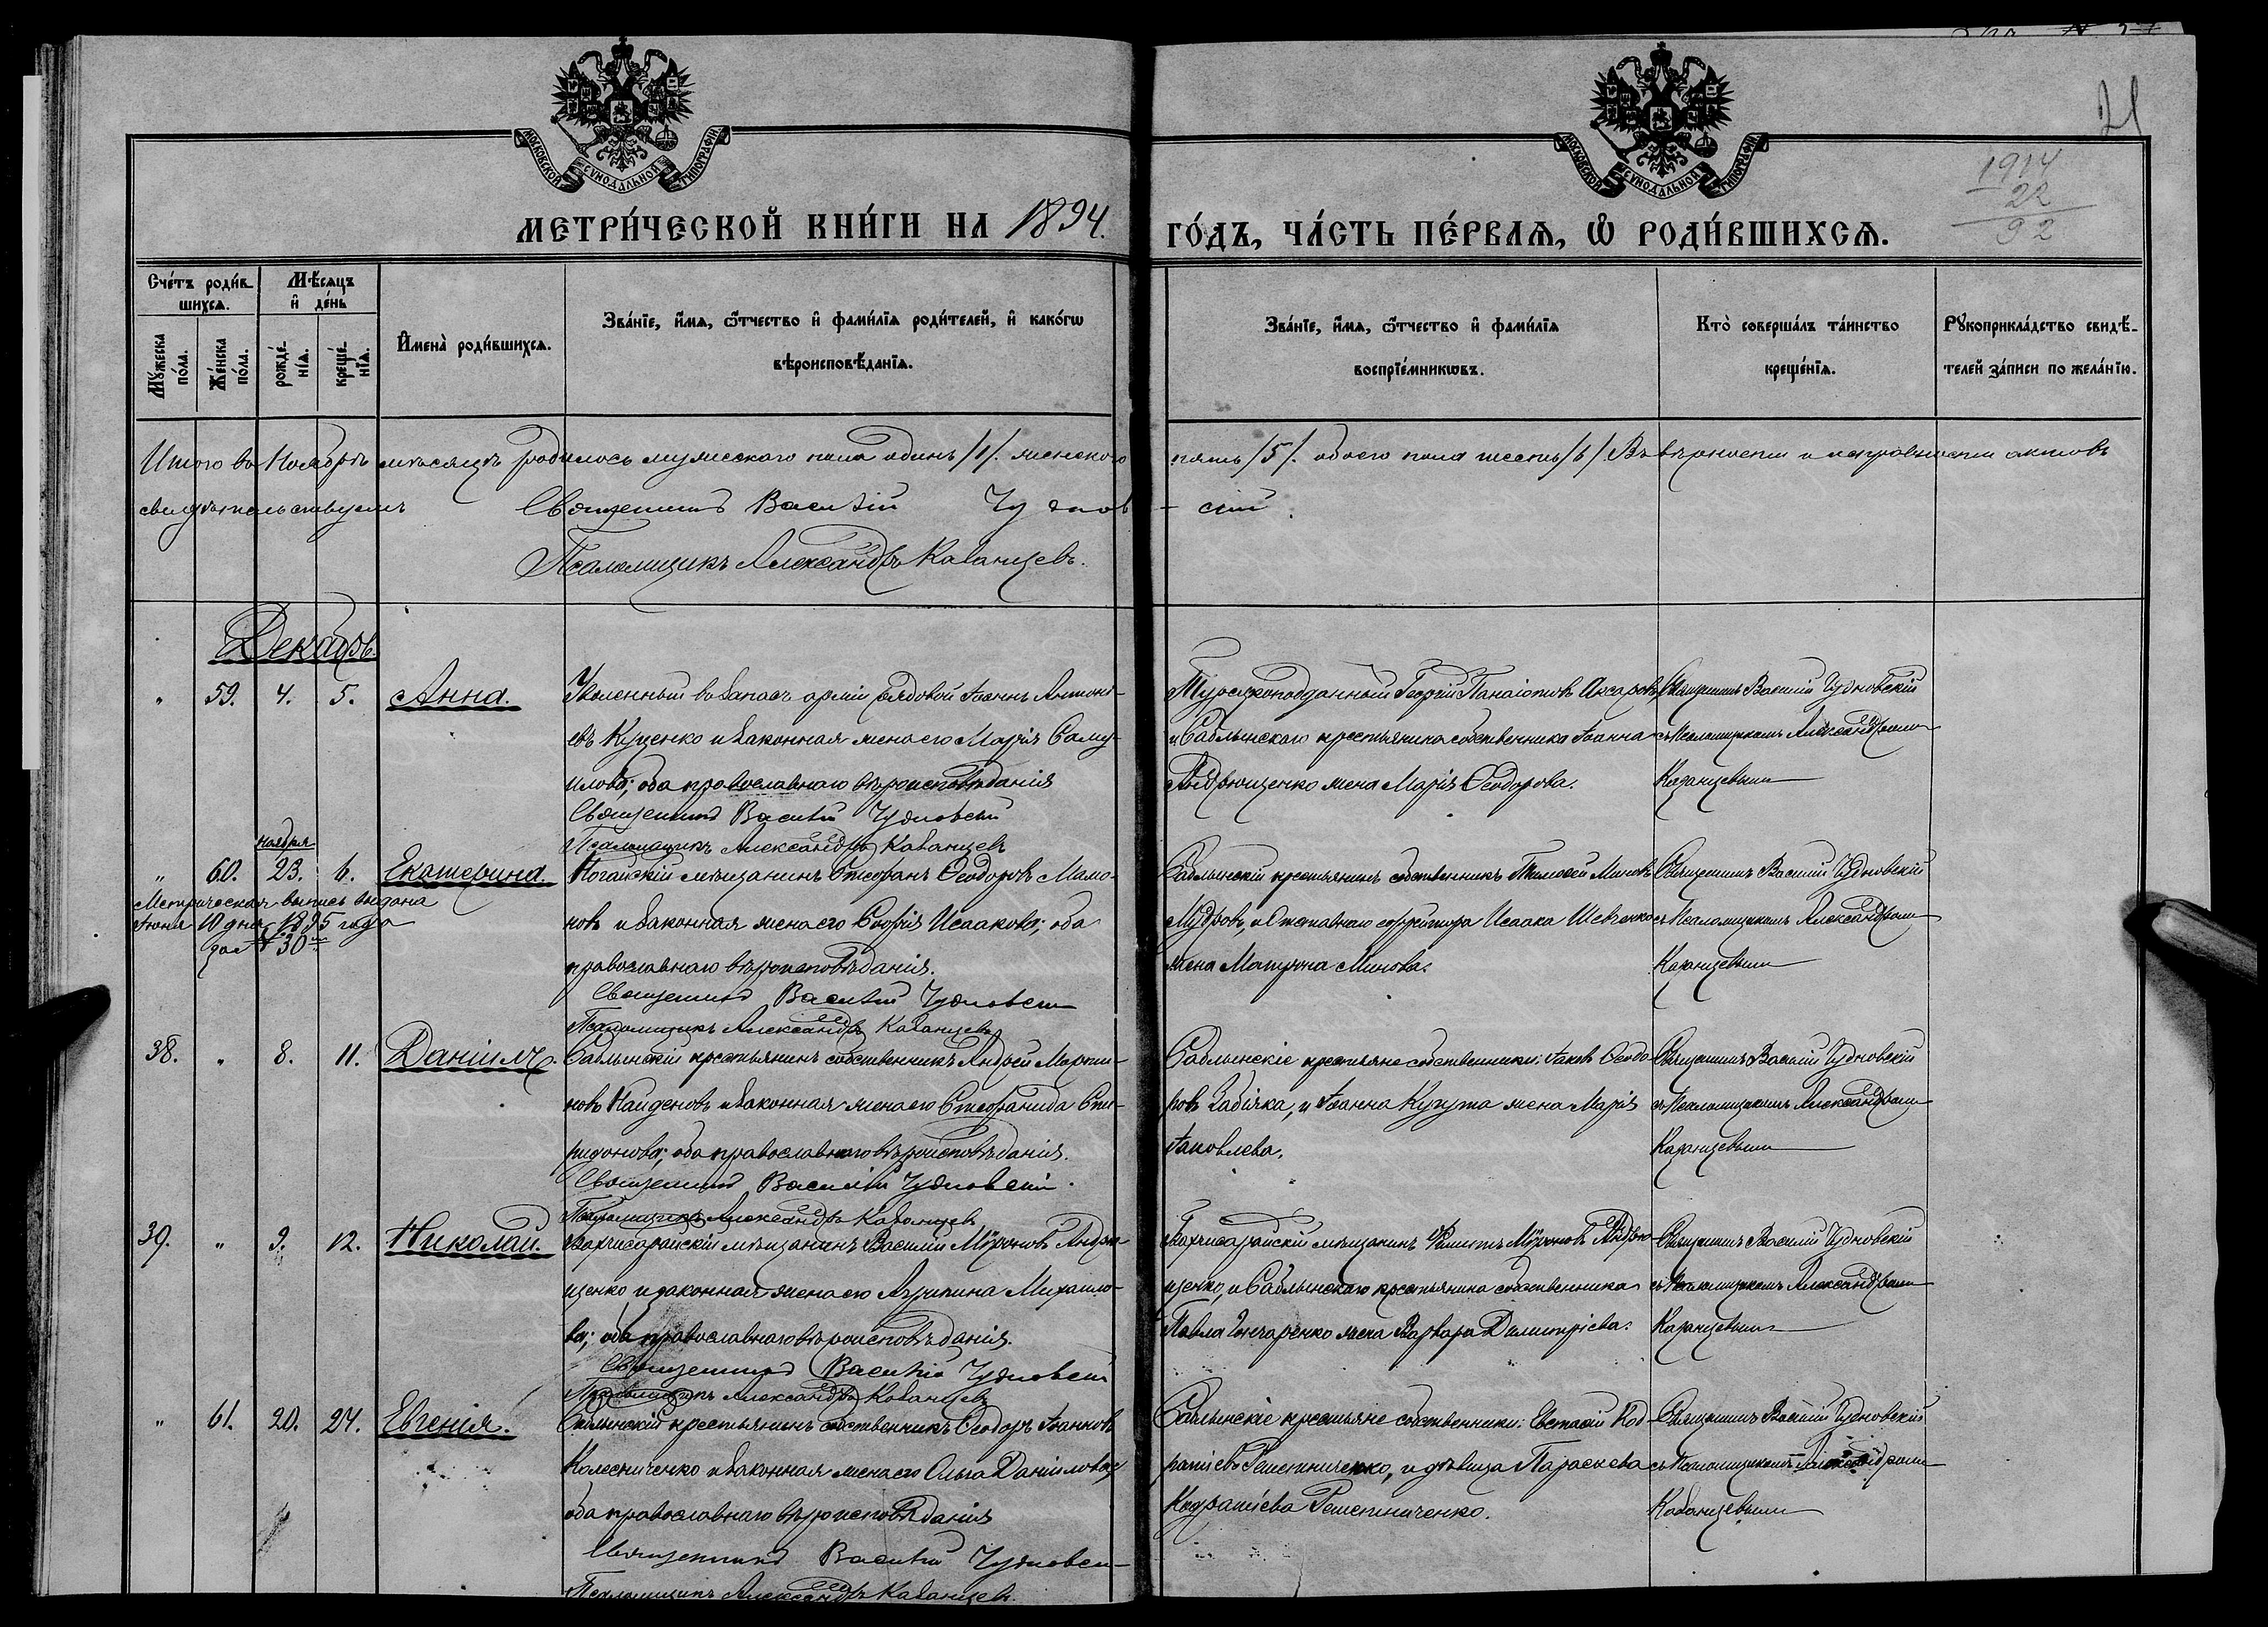 21
1914
22
92
МОСКОВСКОЙ СУНОДАЛЬНОЙ ТИПОГРАФІИ
МОСКОВСКОЙ СУНОДАЛЬНОЙ ТИПОГРАФІИ
МЕТРИ́ЧЕСКОЙ КНИ́ГИ НА 1894. ГО́ДЪ, ЧА́СТЬ ПЕ́РВАѦ, Ѡ РОДИ́ВШИХСѦ.
Сче́тъ роди́в-
шихсѧ.
Мѣ́сѧцъ
и҆ де́нь
Мꙋ́жеска по́ла.
Же́нска по́ла.
рожде́-
нїѧ.
креще́-
нїѧ.
И҆мена̀ роди́вшихсѧ.
Зва́нїе, и҆́мѧ, ѻ҆́тчество и҆ фами́лїѧ роди́телей, и҆ како́гѡ
вѣроисповѣ́данїѧ.
Зва́нїе, и҆́мѧ, ѻ҆́тчество и҆ фами́лїѧ
воспрїе́мникѡвъ.
Кто̀ соверша́лъ та́инство
креще́нїѧ.
Рꙋкоприкла́дство свидѣ́-
телей за́писи по жела́нїю.
Итого въ Ноябрѣ мѣсяцѣ родилось мужескаго пола одинъ /1/. женского пять /5/. обоего пола шесть /6/ Въ вѣрности и исправности актовъ
свидѣтельствуемъ Священникъ Василій Чуднов-скій
Псаломщикъ Александръ Казанцевъ.
Декабрь.
" 59. 4. 5. Анна.
Уволенный въ запасъ арміи рядовой Іоаннъ Антоні-
евъ Куценко и законная жена его Марія Саму-
илова; оба православнаго вѣроисповѣданія
Священникъ Василій Чудновскій
Псаломщикъ Александръ Казанцевъ
Турецкоподданный Георгій Панаіотовъ
и Саблынскаго крестьянина собственника Іоанна
Андрющенко жена Марія Ѳеодорова.
Священникъ Василій Чудновскій
съ Псаломщикомъ Александромъ
Казанцевымъ
ноября
" 60. 23. 6. Екатерина.
Метрическая выпись выдана
Іюня 10 дня 1895 года
за № 30
Ногайскій мѣщанинъ Стефанъ Ѳеодоровъ Мамо-
новъ и законная жена его Софія Исаакова; оба
православнаго вѣроисповѣданія.
Священникъ Василій Чудновскій
Псаломщикъ Александръ Казанцевъ
Саблынскій крестьянинъ собственникъ Тимоѳей Миновъ
Мудровъ, и Отставнаго ефрейтора Исаака Шевченко
жена Матрона Минова.
Священникъ Василій Чудновскій
съ Псаломщикомъ Александромъ
Казанцевымъ
38. " 8. 11. Даніилъ.
Саблынскій крестьянинъ собственникъ Андрей Марти-
новъ Найденовъ и законная жена его Стефанида Спи-
ридонова; оба православнаго вѣроисповѣданія.
Священникъ Василій Чудновскій.
Псаломщикъ Александръ Казанцевъ
Саблынскіе крестьяне собственники: Іаковъ Ѳеодо-
ровъ Забіяка, и Іоанна Кукута жена Марія
Іаковлева.
Священникъ Василій Чудновскій
съ Псаломщикомъ Александромъ
Казанцевымъ
39. " 9. 12. Николай.
Бахчисарайскій мѣщанинъ Василій Мѵроновъ Андрю-
щенко и законная жена его Агрипина Михаило-
ва; оба православнаго вѣроисповѣданія.
Священникъ Василій Чудновскій
Псаломщикъ Александръ Казанцевъ
Бахчисарайскій мѣщанинъ Филиппъ Мѵроновъ Андрю-
щенко, и Саблынскаго крестьянина собственника
Павла Гончаренко жена Варвара Димитріева.
Священникъ Василій Чудновскій
съ Псаломщикомъ Александромъ
Казанцевымъ
" 61. 20. 24. Евгенія.
Саблынскій крестьянинъ собственникъ Ѳеодоръ Іоанновъ
Колесниченко и законная жена его Ольга Даніилова;
оба православнаго вѣроисповѣданія
Священникъ Василій Чудновскій
Псаломщикъ Александръ Казанцевъ.
Саблынскіе крестьяне собственники: Евстафій Код-
ратіевъ Решетниченко, и дѣвица Параскева
Кодратіева Решетниченко.
Священникъ Василій Чудновскій
съ Псаломщикомъ Александромъ
Казанцевымъ